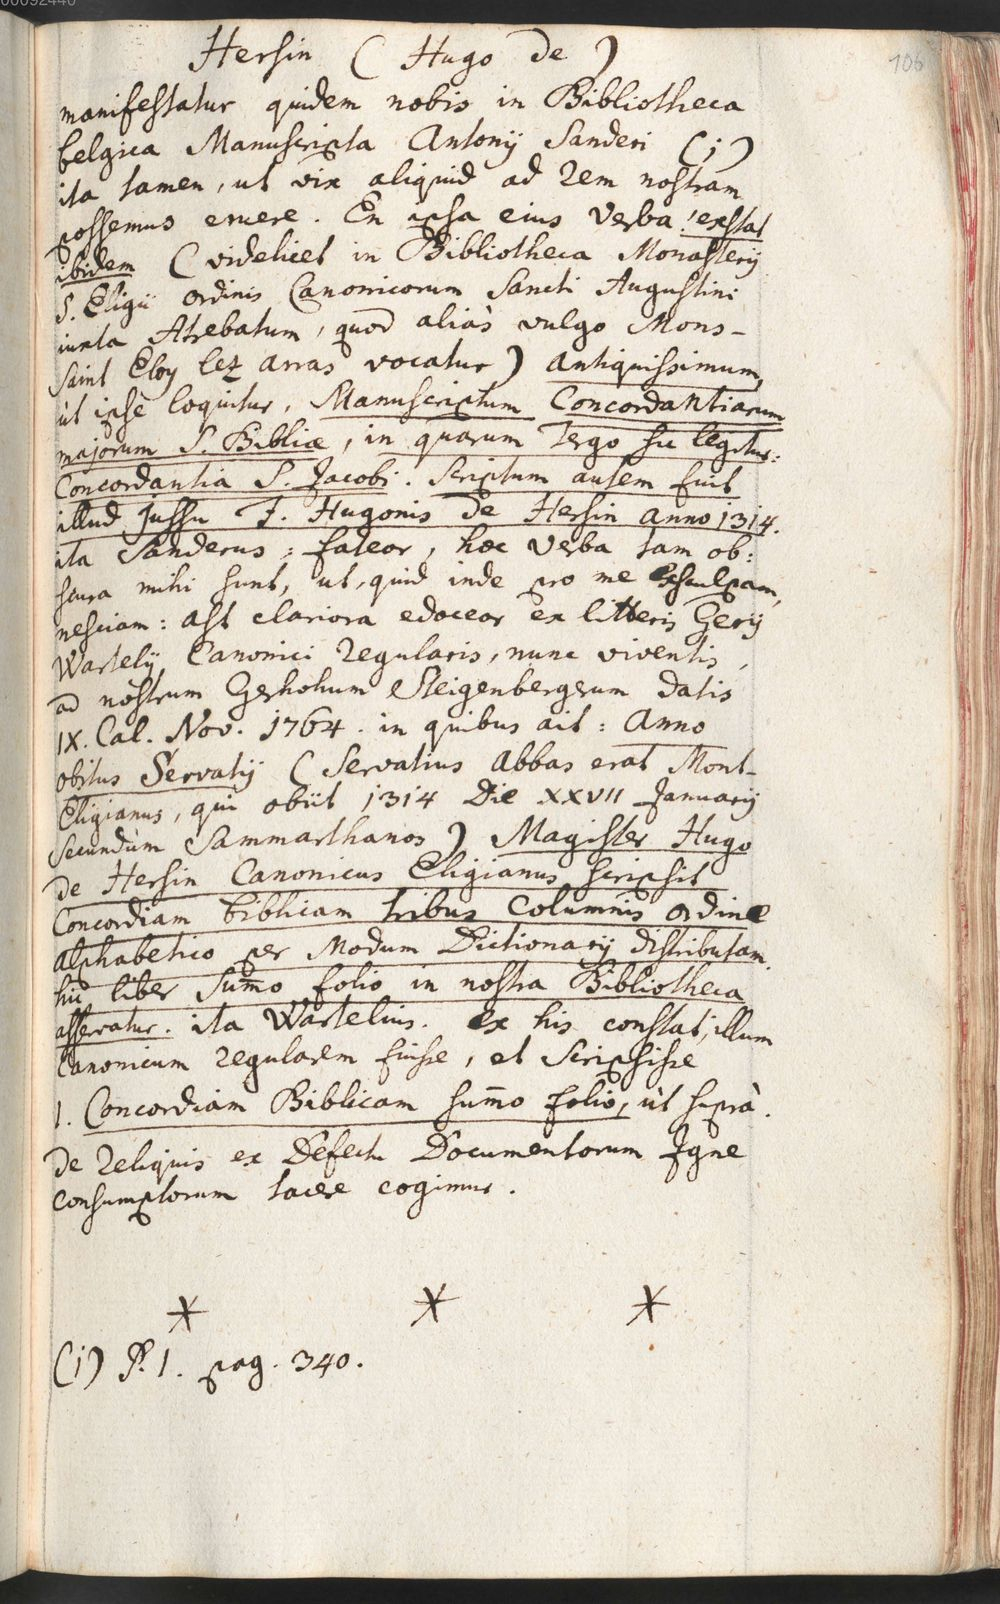 00092440
106
Hersin ( Hugo de )
manifestatur quidem nobis in Bibliotheca
belgica Manuscripta Antonij Sanderi (i)
ita tamen, ut vix aliquid ad rem nostram
possemus eruere. En ipsa eius verba! exstat
ibidem ( videlicet in Bibliotheca Monasterij
S. Eligii ordinis Canonicorum Sancti Augustini
iuxta Atrebatum, quod aliàs vulgo Mons-
Saint Eloy lez arras vocatur ) antiquissimum,
ut ipse loquitur, Manuscriptum Concordantiarum
majorum S. Bibliae, in quarum Tergo sic legitur:
Concordantia S. Jacobi. Scriptum autem fuit
illud jussu F. Hugonis de Hersin anno 1314.
ita Sanderus: fateor, hoc verba tam ob:
scura mihi sunt, ut, quid inde pro me exsculpam,
nesciam: ast clariora edoceor ex litteris Gerij
Wartelij Canonici regularis, nunc viventis,
ad nostrum Gerhohum Steigenbergerum datis
IX. Cal. Nov. 1764. in quibus ait: Anno
obitus Servatij ( Servatius Abbas erat Mont-
Eligianus, qui obiit 1314 die XXVII Januarij
secundùm Sammarthanos ) Magister Hugo
de Hersin Canonicus Eligianus scripsit
Concordiam biblicam tribus Columnis ordine
alphabetico per Modum Dictionarij distributam.
hic liber sum̄o folio in nostra Bibliotheca
asservatur. ita Wartelius. ex his constat, illum
Canonicum regularem fuisse, et scripsisse
1. Concordiam Biblicam sum̄o folio, ùt suprà.
de reliquis ex defectu Documentorum Igne
consumptorum tacere cogimur.
(i) P. 1. pag. 340.